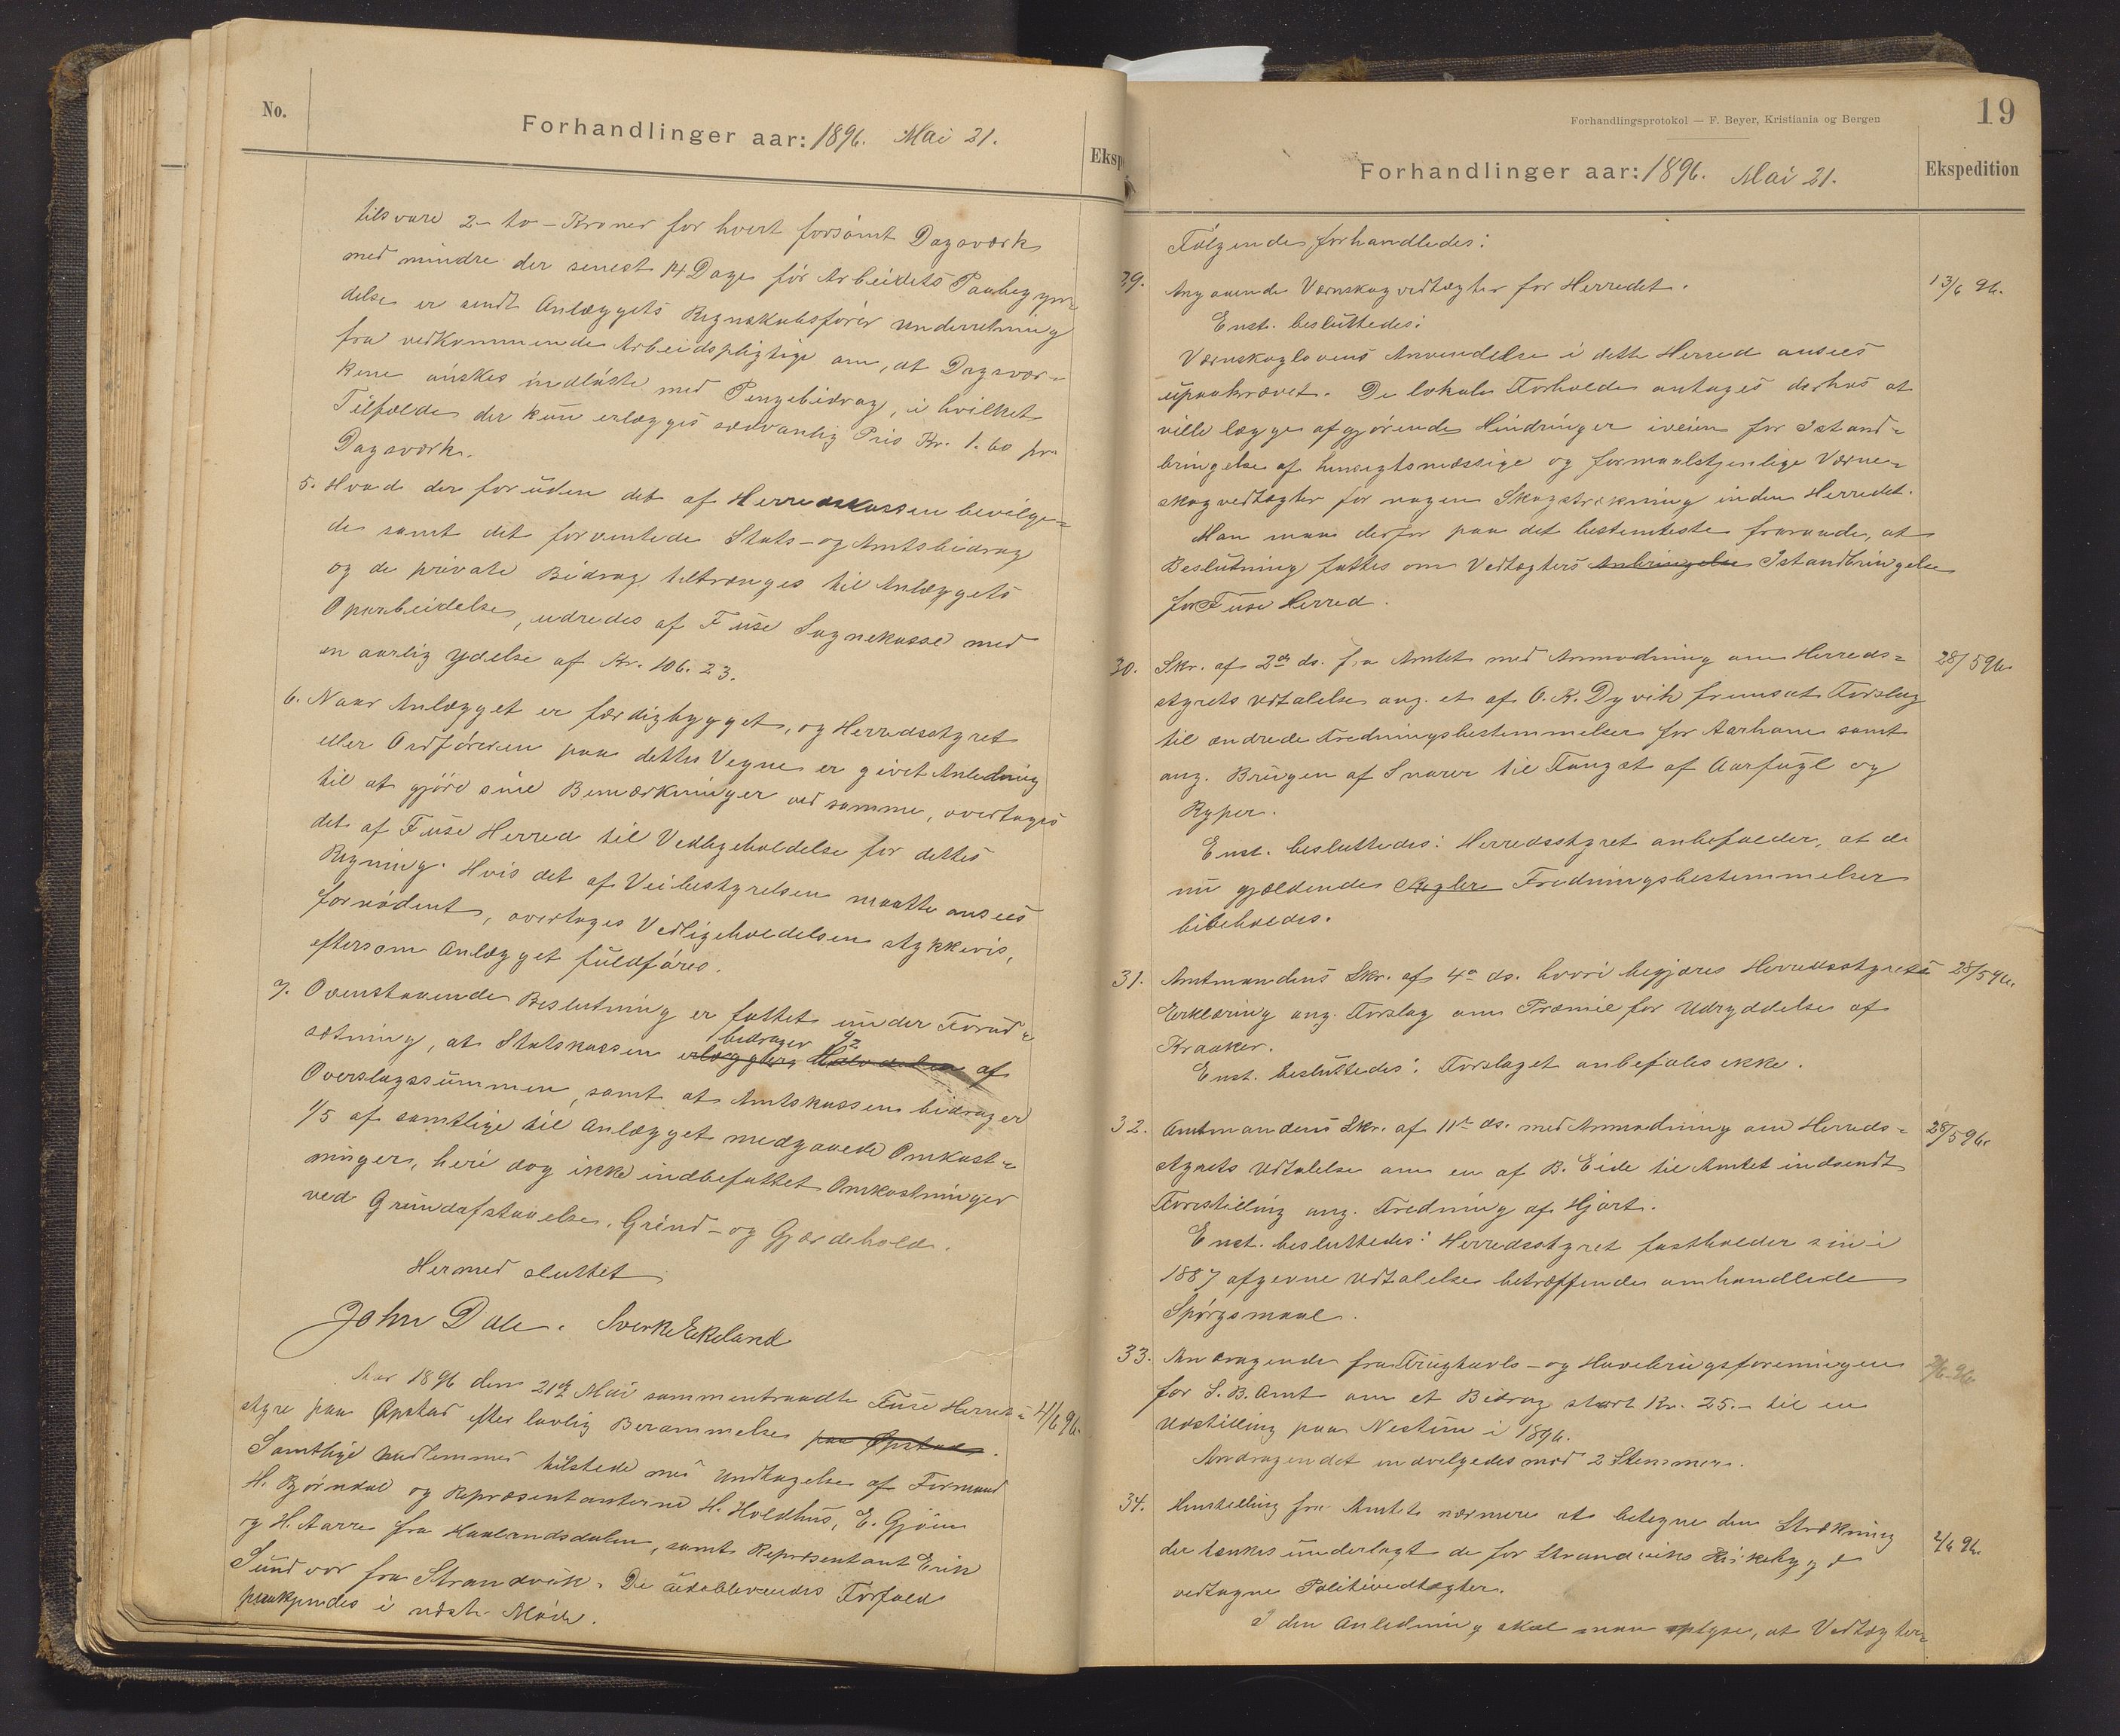 No.
Forhandlinger aar: 1896. Mai 21.
Eksp
tilsvare 2 - to - Kroner for hvert forsømt Dagsværk
med mindre der senest 14 Dage før Arbeidets Paabegyn-
delse er sendt Anlæggets Regnskabsfører Underretning
fra vedkommende Arbeidspligtige om, at Dagsvær-
kene ønskes indløste med Pengebidrag, i hvilket
Tilfælde der kun erlægges sedvanlig Pris Kr. 1.60 pr.
Dagsværk.
5. Hvad der foruden det af Herredskassen bevilge-
de samt det forventede Stats- og Amtsbidrag
og de private Bidrag tiltrænges til Anlæggets
Oparbeidelse, udredes af Fuse Sognekasse med
en aarlig Ydelse af Kr. 106.23.
6. Naar Anlægget er færdigbygget, og Herredsstyret
eller Ordføreren paa dettes Vegne er givet Anledning
til at gjøre sine Bemærkninger ved samme, overtages
det af Fuse Herred til Vedligeholdelse for dettes
Regning. Hvis det af Veibestyrelsen maatte ansees
fornødent, overtages Vedligeholdelsen stykkevis,
eftersom Anlægget fuldføres.
7. Ovenstaaende Beslutning er fattet under Forud-
sætning, at Statskassen erlægger Halvdelen af
bidrager 1/2
Overslagssummen, samt at Amtskassen bidrager
1/5 af samtlige til Anlægget medgaaede Omkost-
ninger, heri dog ikke indbefattet Omkostninger
ved Grundafstaaelse, Grind- og Gjærdehold.
Hermed sluttet
John Dale. Sverke Ekeland
Aar 1896 den 21de Mai sammentraadte Fuse Herreds-
4/6 96.
styre paa Opstad efter lovlig Berammelse paa Opstad.
Samtlige Medlemmer tilstede med Undtagelse af Formand
H. Bjørndal og Repræsentanterne H. Holdhus, E. Gjøen
og H. Aarre fra Haalandsdalen, samt Repræsentant Erik
Sundvor fra Strandvik. De udeblevendes Forfald
paakjendes i næste Møde.
Forhandlingsprotokol — F. Beyer, Kristiania og Bergen
19
Forhandlinger aar: 1896. Mai 21.
Ekspedition
Følgende forhandledes:
29. Angaaende Værnskogvedtægter for Herredet.
13/6 96.
Enst. besluttedes:
Værnskoglovens Anvendelse i dette Herred ansees
upaakrævet. De lokale Forholde antages derhos at
ville lægge afgjørende Hindringer iveien for Istand-
bringelse af hensigtsmæssige og formaalstjenlige Værne-
skogvedtægter for nogen Skogstrækning inden Herredet.
Man maa derfor paa det bestemteste fraraade, at
Beslutning fattes om Vedtægters Anbringelse Istandbringelse
for Fuse Herred.
30. Skr. af 2de ds. fra Amtet med Anmodning om Herreds-
28/5 96.
styrets Udtalelse ang. et af O. K. Dyvik fremsat Forslag
til ændrede Fredningsbestemmelser for Aarhane samt
ang. Brugen af Snarer til Fangst af Aarfugl og
Ryper.
Enst. besluttedes: Herredsstyret anbefaler, at de
nu gjældende Regler Fredningsbestemmelser
bibeholdes.
31. Amtmandens Skr. af 4de ds. hvori begjæres Herredsstyrets
28/5 96.
Erklæring ang. Forslag om Præmie for Udryddelse af
Kraaker.
Enst. besluttedes: Forslaget anbefales ikke.
32. Amtmandens Skr. af 11te ds. med Anmodning om Herreds-
28/5 96.
styrets Udtalelse om en af B. Eide til Amtet indsendt
Forestilling ang. Fredning af Hjort.
Enst. besluttedes: Herredsstyret fastholder sin i
1887 afgivne Udtalelse betræffende omhandlede
Spørgsmaal.
33. Andragende fra Frugthavls- og Havebrugsforeningen
2/6 96.
for S. B. Amt om et Bidrag stort Kr. 25.- til en
Udstilling paa Nestun i 1896.
Andragendet indvilgedes mod 2 Stemmer.
34. Henstilling fra Amtet nærmere at betegne den Strækning
2/6 96.
der tænkes underlagt de for Strandviks Kirkebygd
vedtagne Politivedtægter.
I den Anledning skal man oplyse, at Vedtægter-